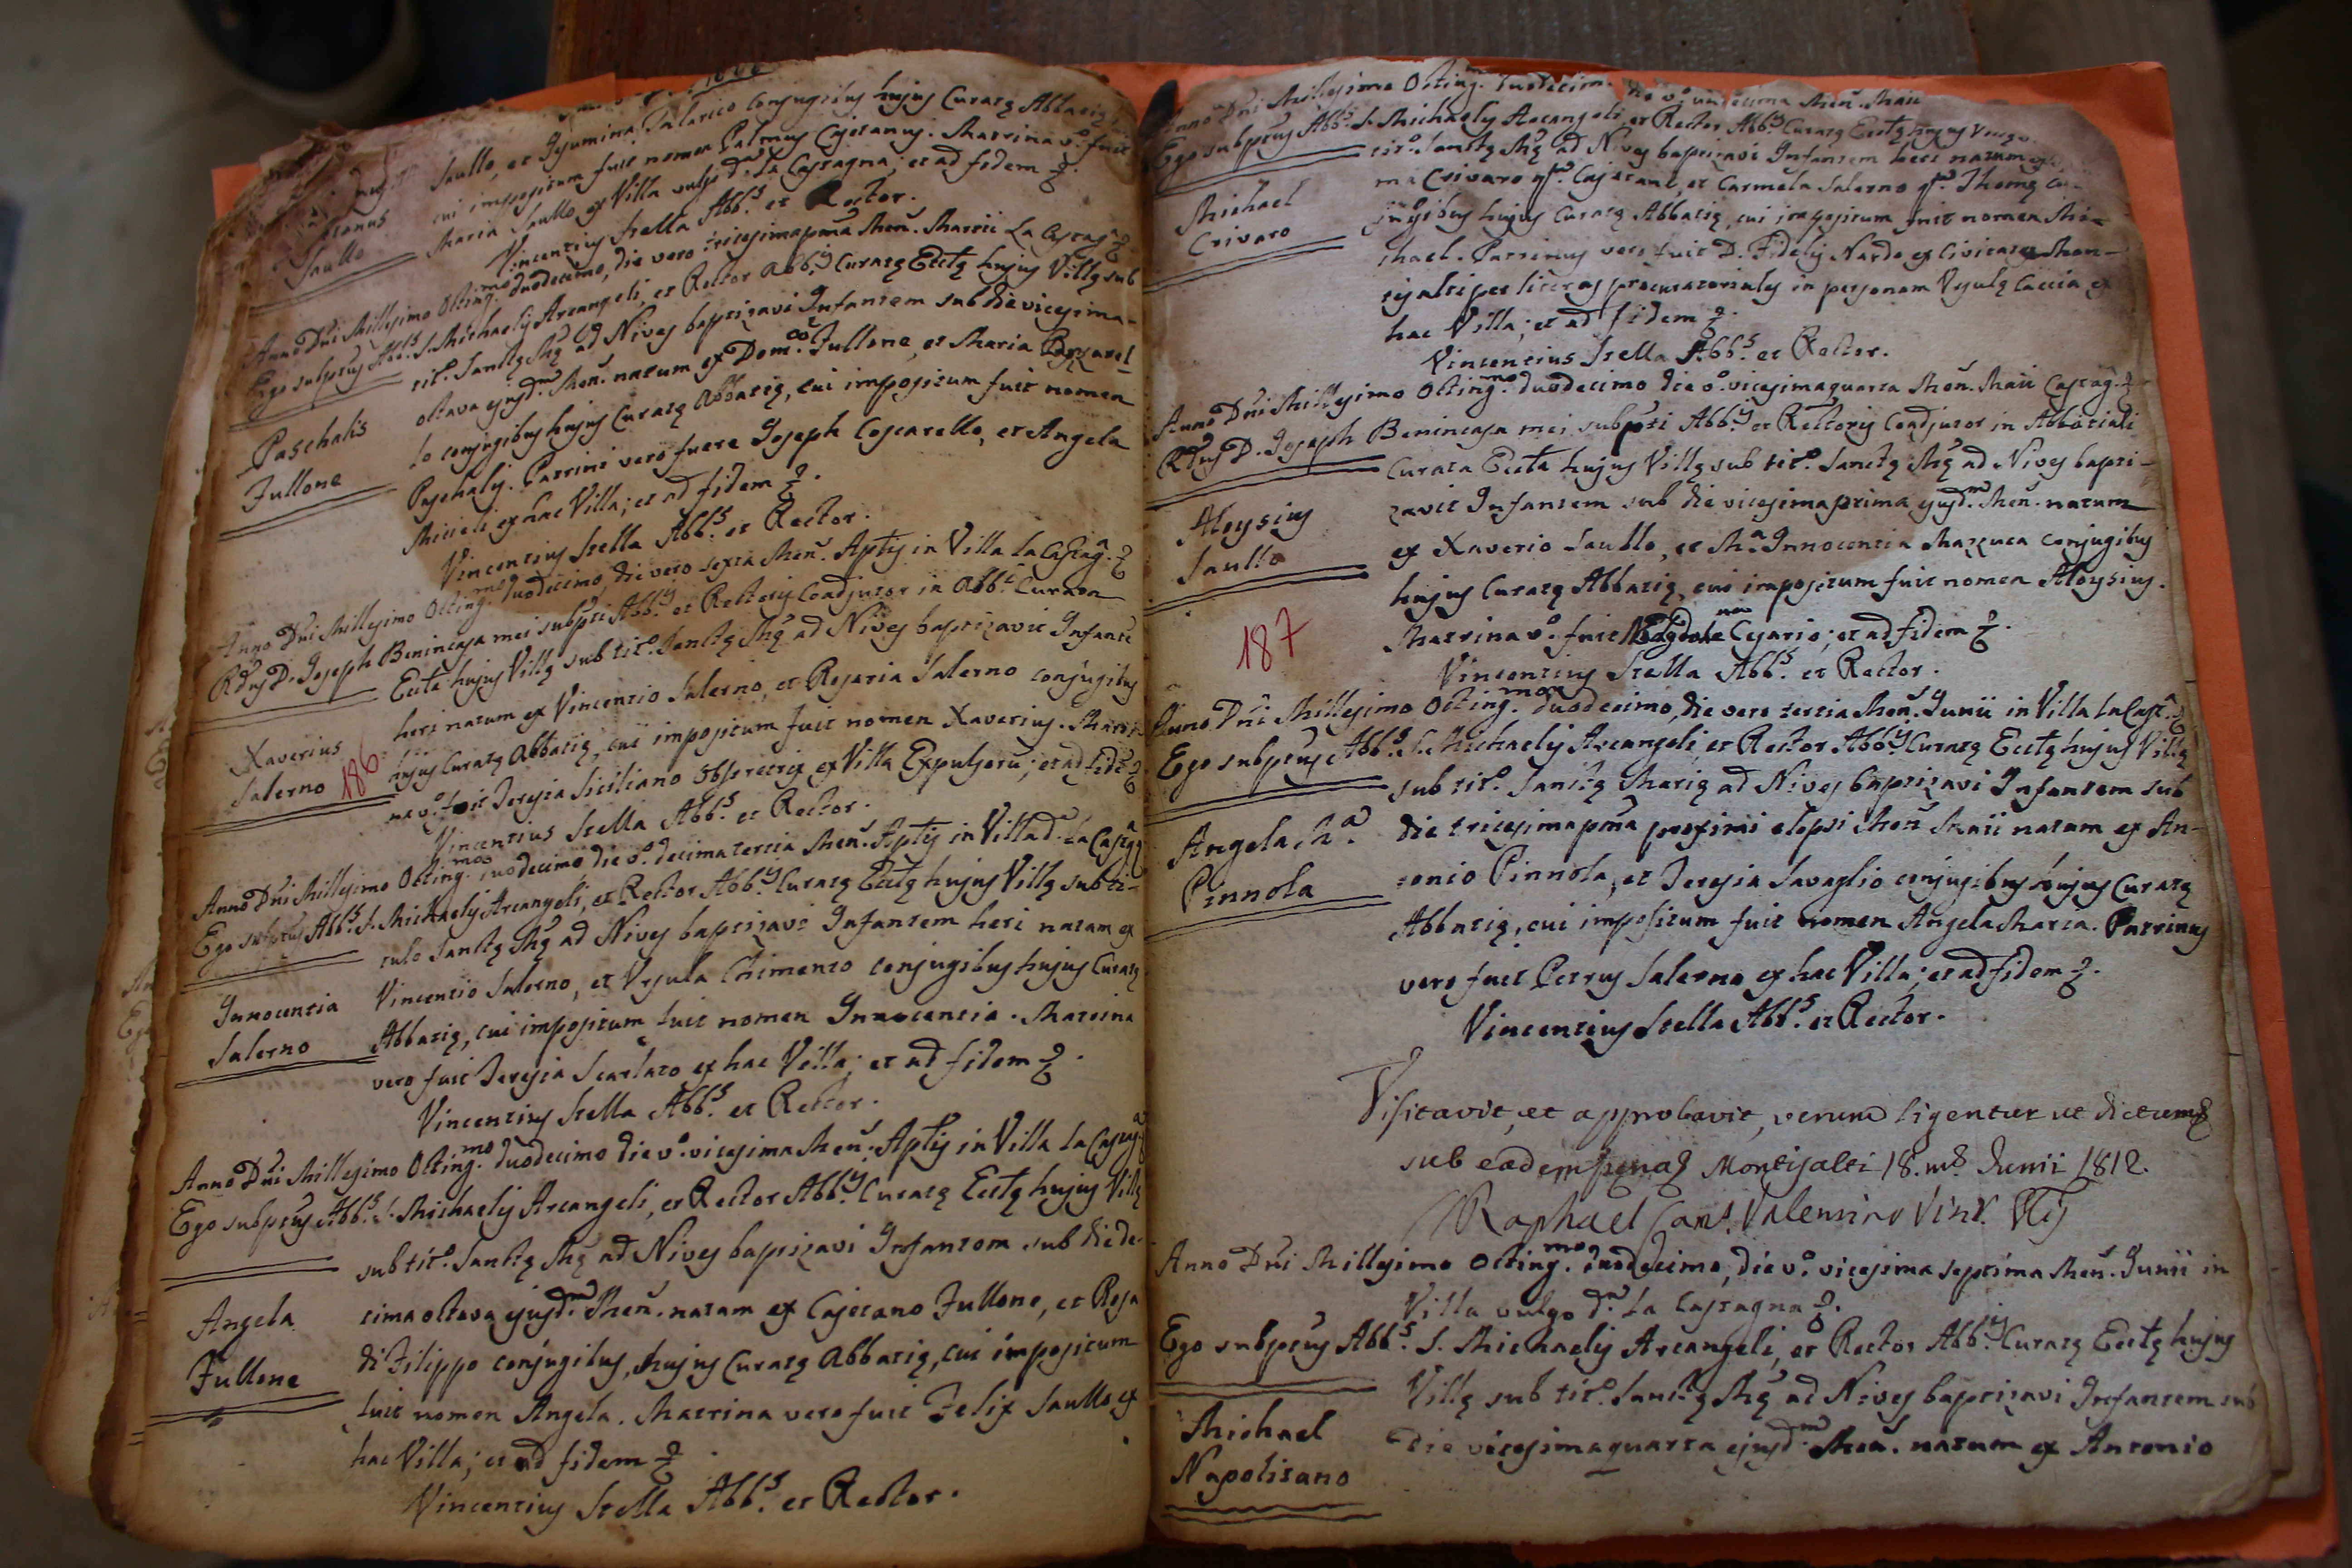 Saullo, et Gesumina Talarico conjugibus hujus Curatę Abbatię,
cui impositum fuit nomen Palmus Cajetanus. Matrina vº. fuit
Maria Saullo ex Villa vulgo dª. La Castagna; et ad fidem
Vincentius Stella Abbˢ. et Rector.
Saullo
Anno Dñi Millesimo Octingᵐᵒ. duodecimo, die vero tricesimapma Meñ. Martii La Castagª.
Ego subptus Abbˢ. S. Michaelis Arcangeli, et Rector Abbˢ. Curatę Ecctę hujus Villę sub
titº. Sanctę Mę ad Nives baptizavi Infantem sub die vicesima-
octava ejusdᵐ. Meñ. natum ex Domᶜᵒ. Fullone, et Maria Coscarel
lo conjugibus hujus Curatę Abbatię, cui impositum fuit nomen
Paschalis. Patrini vero fuere Joseph Coscarello, et Angela
Miceli ex hac Villa; et ad fidem
Vincentius Stella Abbˢ. et Rector.
Paschalis
Fullone
Anno Dñi Millesimo Octingᵐᵒ. duodecimo, die vero sexta Meñ. Aptis in Villa La Castagª.
Rdus D. Joseph Benincasa mei subpti Abbⁱˢ. et Rectoris Coadjutor in Abbⁱ. Curata
Eccta hujus Villę sub titº. Sanctę Mę ad Nives baptizavit Infante
heri natum ex Vincentio Salerno, et Rosaria Salerno conjugibus
hujus Curatę Abbatię, cui impositum fuit nomen Xaverius. Matri-
na vº. fuit Teresia Siciliano Obstetrix ex Villa Expulsoru; et ad fidē
Vincentius Stella Abbˢ. et Rector.
Xaverius
Salerno
186
Anno Dñi Millesimo Octingᵐᵒ. duodecimo, die vº. decimatertia Meñ. Aptis in Villa dª. La Castagª
Ego subptus Abbˢ. S. Michaelis Arcangeli, et Rector Abbⁱˢ. Curatę Ecctę hujus Villę sub ti-
tulo Sanctę Mę ad Nives baptizavi Infantem heri natam ex
Vincentio Salerno, et Ursula Chimento conjugibus hujus Curatę
Abbatię, cui impositum fuit nomen Innocentia. Matrina
vero fuit Teresia Scarlato ex hac Villa; et ad fidem
Vincentius Stella Abbˢ. et Rector.
Innocentia
Salerno
Anno Dñi Millesimo Octingᵐᵒ. duodecimo die vº. vicesima Meñ. Aptis in Villa La Castagª
Ego subptus Abbˢ. S. Michaelis Arcangeli, et Rector Abbⁱˢ. Curatę Ecctę hujus Villę
sub titº. Sanctę Mę ad Nives baptizavi Infantem sub die de-
cima octava ejusdᵐ. Meñ. natam ex Cajetano Fullone, et Rosa
di Filippo conjugibus, hujus Curatę Abbatię, cui impositum
fuit nomen Angela. Matrina vero fuit Felix Saullo ex
hac Villa; et ad fidem
Vincentius Stella Abbˢ. et Rector.
Angela
Fullone
Anno Dñi Millesimo Octingᵐ. duodecim. die vº. Meñ. Maii
Ego subptus Abbˢ. S. Michaelis Arcangeli, et Rector Abbⁱˢ. Curatę Ecctę hujus
titº. Sanctę Mę ad Nives baptizavi Infantem heri natum
ma Crivaro qᵐ. Cajetani, et Carmela Salerno qᵐ. Thomę Con-
jugibus hujus Curatę Abbatię, cui impositum fuit nomen Mi-
chael. Patrinus vero fuit D. Fidelis Nardo ex Civitate Mon-
tisalti per literas procuratoriales in personam Ursulę Caccia ex
hac Villa; et ad fidem
Vincentius Stella Abbˢ. et Rector.
Michael
Crivaro
Anno Dñi Millesimo Octingᵐᵒ. duodecimo die vº. vicesimaquarta Meñ. Maii Castagª.
Rdus D. Joseph Benincasa mei subpti Abbⁱˢ. et Rectoris Coadjutor in Abbatiali
Curata Eccta hujus Villę sub titº. Sanctę Mę ad Nives bapti-
zavit Infantem sub die vicesimaprima ejusdᵐ. Meñ. natum
ex Xaverio Saullo, et Mª. Innocentia Mazzuca conjugibus
hujus Curatę Abbatię, cui impositum fuit nomen Aloysius.
Matrina vº. fuit Magdalena Cesario; et ad fidem
Vincentius Stella Abbˢ. et Rector.
Aloysius
Saullo
187
Anno Dñi Millesimo Octingᵐᵒ. duodecimo, die vero tertia Meñ. Junii in Villa La Castª.
Ego subptus Abbˢ. S. Michaelis Arcangeli, et Rector Abbⁱˢ. Curatę Ecctę hujus Villę
sub titº. Sanctę Marię ad Nives baptizavi Infantem sub
die tricesimapma proximi elapsi Meñ Maii natam ex An-
tonio Pinnola, et Teresia Savaglio conjugibus hujus Curatę
Abbatię, cui impositum fuit nomen Angela Maria. Patrinus
vero fuit Petrus Salerno ex hac Villa; et ad fidem
Vincentius Stella Abbˢ. et Rector.
Angela Mª.
Pinnola
Visitavit, et approbavit, verum ligentur ut dictum
sub eadem pena Montisalti 18. mˢ Junii 1812.
Raphael Canᶜ. Valentino
Anno Dñi Millesimo Octingᵐᵒ. duodecimo, die vº. vicesima septima Meñ. Junii in
Villa vulgo dª. La Castagna
Ego subptus Abbˢ. S. Michaelis Arcangeli, et Rector Abbⁱˢ. Curatę Ecctę hujus
Villę sub titº. Sanctę Mę ad Nives baptizavi Infantem sub
die vicesimaquarta ejusdᵐ. Meñ. natum ex Antonio
Michael
Napolitano